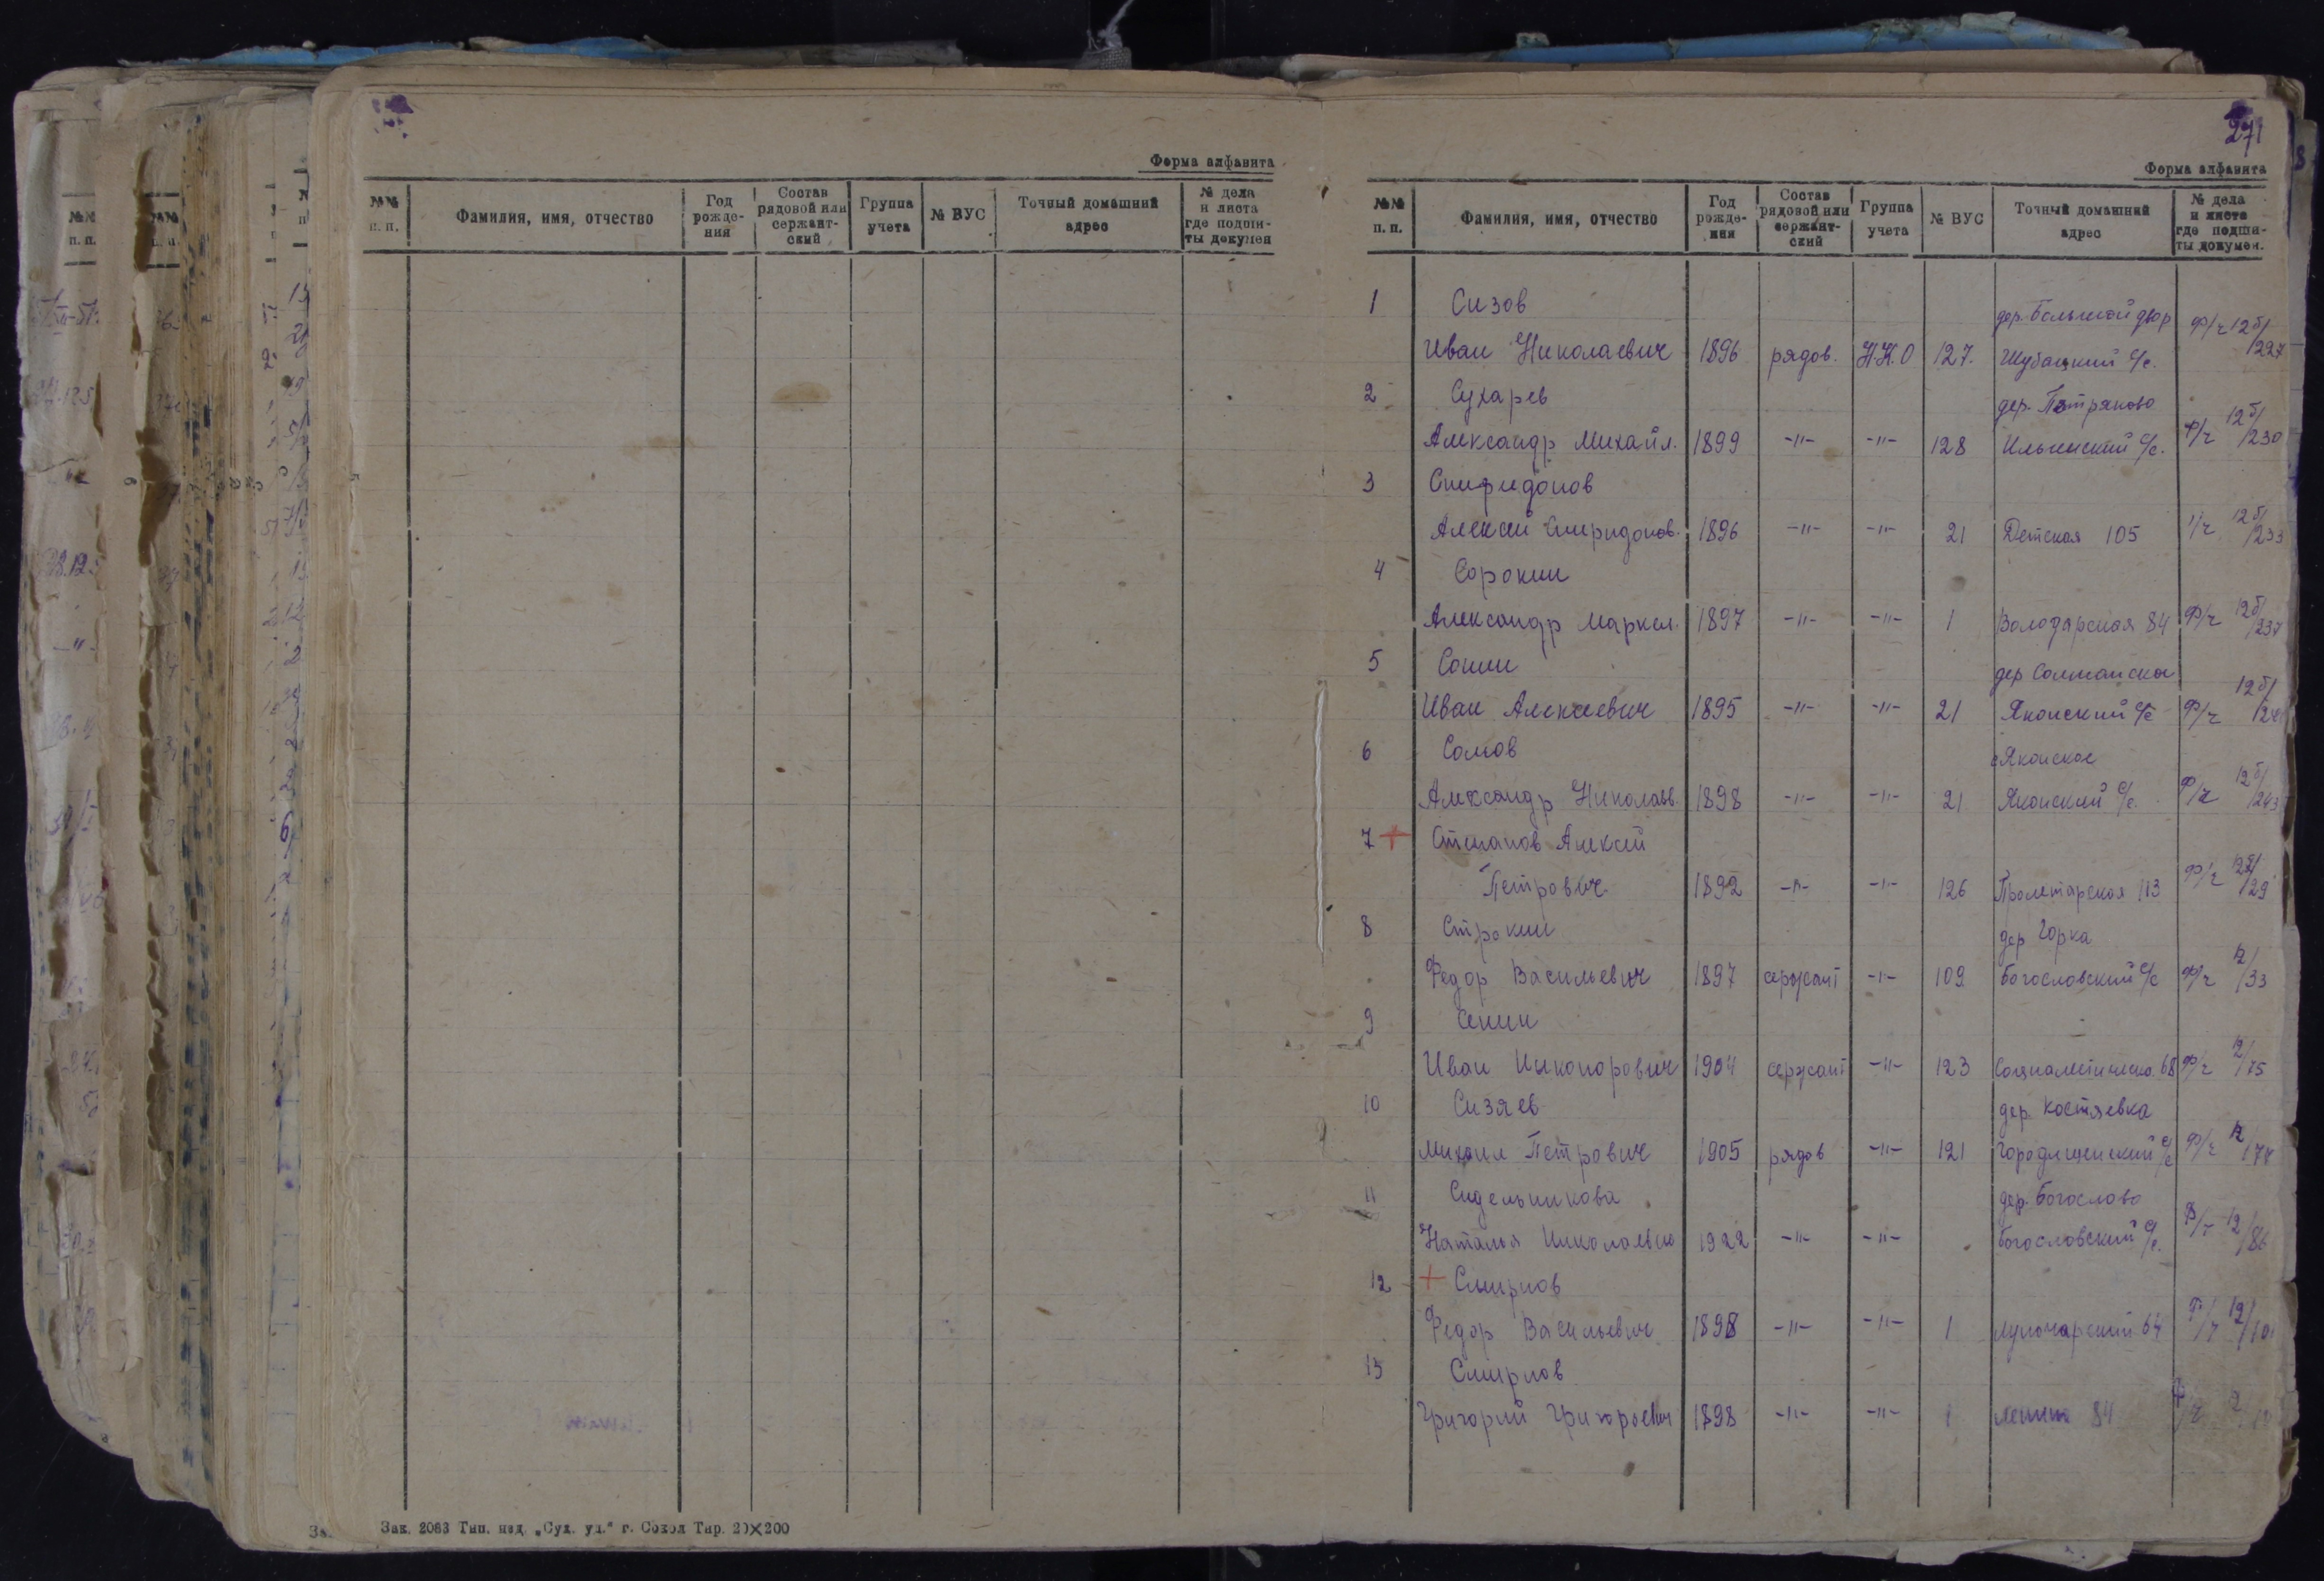 Форма алфавита
№№ п. п. Фамилия, имя, отчество Год рожде- ния Состав рядовой или сержант- ский Группа учета № ВУС Точный домашний адрес № дела и листа где подши- ты докумен
Зак. 2083 Тип. изд. „Сух. ул.“ г. Сокол Тир. 20×200
271
Форма алфавита
№№ п. п. Фамилия, имя, отчество Год рожде- ния Состав рядовой или сержант- ский Группа учета № ВУС Точный домашний адрес № дела и листа где подши- ты докумен.
1 Сизов дер. Большой двор
Иван Николаевич 1896 рядов. Н.К.О 127. Шубацкий с/с. ф/ч 12б/227
2 Сухарев дер. Петряково
Александр Михайл. 1899 -"- -"- 128 Ильинский с/с. ф/ч 12б/230
3 Спиридонов
Алексей Спиридонов. 1896 -"- -"- 21 Детская 105 12б/233
4 Сорокин
Александр Маркел. 1897 -"- -"- 1 Володарская 84 ф/ч 12б/237
5 Сонин дер Солманское
Иван Алексеевич 1895 -"- -"- 21 Яконский с/с ф/ч 12б/
6 Сомов с Яконское
Александр Николаев. 1898 -"- -"- 21 Яконский с/с. ф/ч 12б/243
7 + Степанов Алексей
Петрович 1892 -"- -"- 126 Пролетарская 113 ф/ч /29
8 Строкин дер Горка
Федор Васильевич 1897 сержант -"- 109 Богословский с/с ф/ч 12/33
9 Сенин
Иван Никонорович 1904 сержант -"- 123 68 ф/ч 12/75
10 Сизяев дер. Костяевка
Михаил Петрович 1905 рядов -"- 121 Городищенский с/с ф/ч 12/
11 Сидельникова дер. Богослово
Наталья Николаевна 1922 -"- -"- Богословский с/с. 12/86
12 + Смирнов
Федор Васильевич 1898 -"- -"- 1 Луночарский 64 12/
13 Смирнов
Григорий Григорьевич 1898 -"- -"- 1 Ленина 84